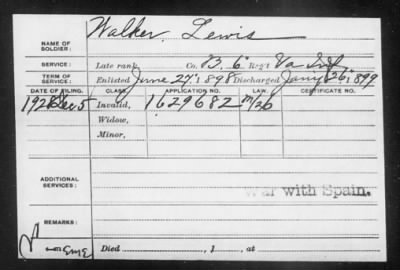 NAME OF SOLDIER: Walker, Lewis
SERVICE: Late rank, Co. B. 6" Reg't Va Inf
TERM OF SERVICE: Enlisted June 27, 1898 Discharged Jany 26, 1899
DATE OF FILING. CLASS. APPLICATION NO. LAW. CERTIFICATE NO.
1928 Dec 5 Invalid, 1629682
Widow,
Minor,
ADDITIONAL SERVICES:
War with Spain.
REMARKS:
Died , 1 , at